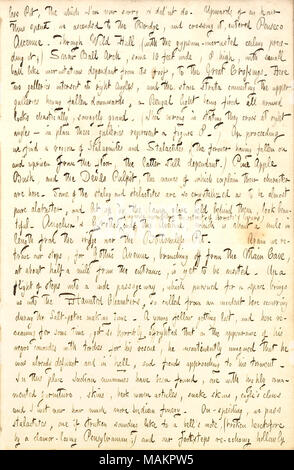 love, the which I'm now sorry I did not do. Upwards of an hour
thus spent we ascended to the Bridge, and crossing it, entered Pensico
Avenue. Through Wild Hall (with the gypsum-incrusted ceiling preced-
ing it,) Snow Ball Arch, some 10 feet wide, I high, with small
ball like incrustations dependant from its roof, to the Great Crossings. Here
two galleries intersect at right angles, and the stone strata connecting the upper
galleries having fallen downwards, a Bengal Light being fired all around
looks chaotically, savagely grand. I em wrong in stating they cross at right
angles — in place these galleries represent a figure 8. On proceeding
we find a region of Stalagmites and Stalactites, the former being fallen on
and upriven from the floor, the latter still dependant. Pine Apple
Bush and the Devils Pulpit the names of which explain their character
are here. Some of the stalag and stalactites are so crystalized as to be almost
pure alabaster, and lit up by the lamp glare held behind them, look beau-
tiful. Angelica's Grotto is
length from the bridge near the Bottomless Pit. Again we re-
trace our steps, for Gothic Avenue, branching off from the Main Cave,
at about half a mile from the entrance, is yet to be visited. Up a
flight of steps into a side passage way, which pursued for a space brings
us into the Haunted Chambers, so called from an incident here occurring
during the Salt-petre making time. A young fellow getting lost, and here re-
maining for some time, got so horribly affrighted that on the appearance of his
negro comrades with torches for his rescue, he incontinently imagined that he
was already defunct and in hell, and fiends approaching to his torment.
In this place Indian mummies have been found, one with highly orna-
mented furniture, skins, bark woven articles, snake skins, eagle's claws
and I wot not how much more Indian finery. On-speeding, we pass
stalactites, one if stricken sounding like to a bell's note, (broken heretofore
by a damn-loving Pensylvanian;) and our footsteps re-echoing hollowly
alamy
Image ID: MAKPW5
www.alamy.com